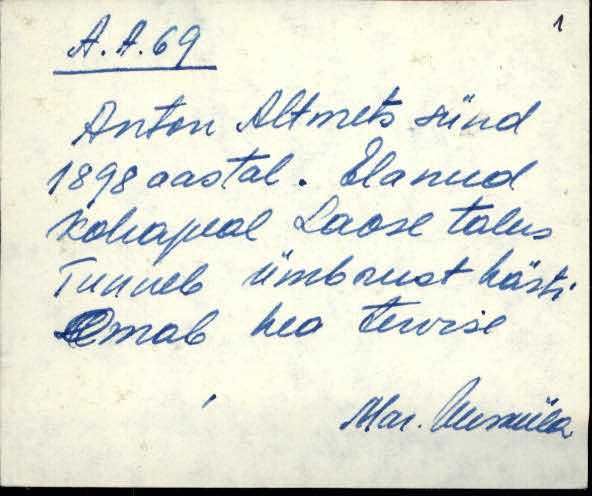 1
A. A. 69
Anton Altmets sünd
1898 aastal. Elanud
kohapeal Laose talus
Tunneb ümbrust hästi
Omab hea tervise
Mar.